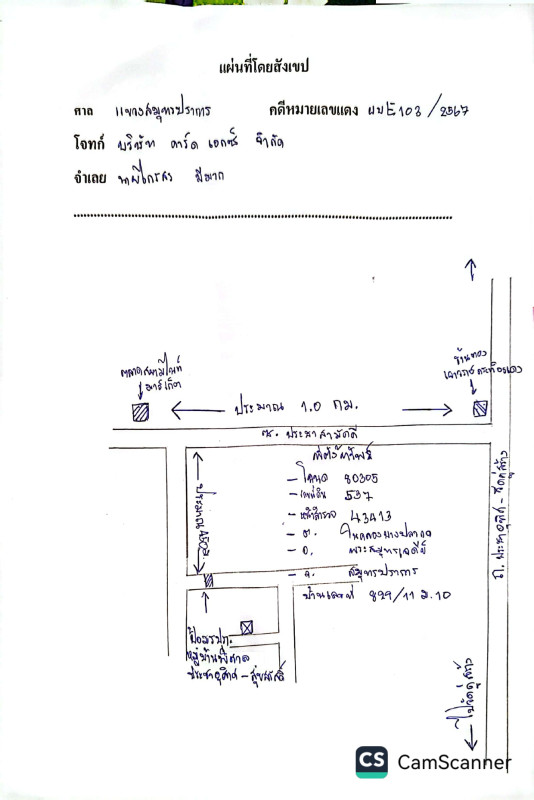 แผ่นที่โดยสังเขป
ศาล แขวงสมุทรปราการ คดีหมายเลขแดง ผบE103/2567
โจทก์ บริษัท คาร์ด เอกซ์ จำกัด
จำเลย นายไกรสร มีมาก
ตลาดสยามไนท์
มาร์เก็ต
ร้านทอง
เยาวราช
ประมาณ 1.0 กม.
ถ. ประชาสามัคคี
ที่ตั้งทรัพย์
- โฉนด 80305
- เลขที่ดิน 537
- หน้าสำรวจ 43413
- ต. ในคลองบางปลากด
- อ. พระสมุทรเจดีย์
- จ. สมุทรปราการ
บ้านเลขที่ 829/11 ม.10
ประมาณ
ป้อมรปภ.
หมู่บ้านพิศาล
ประชาอุทิศ - สุขสวัสดิ์
ถ. ประชาอุทิศ - วัดคู่สร้าง
ไปวัดคู่สร้าง
CS CamScanner